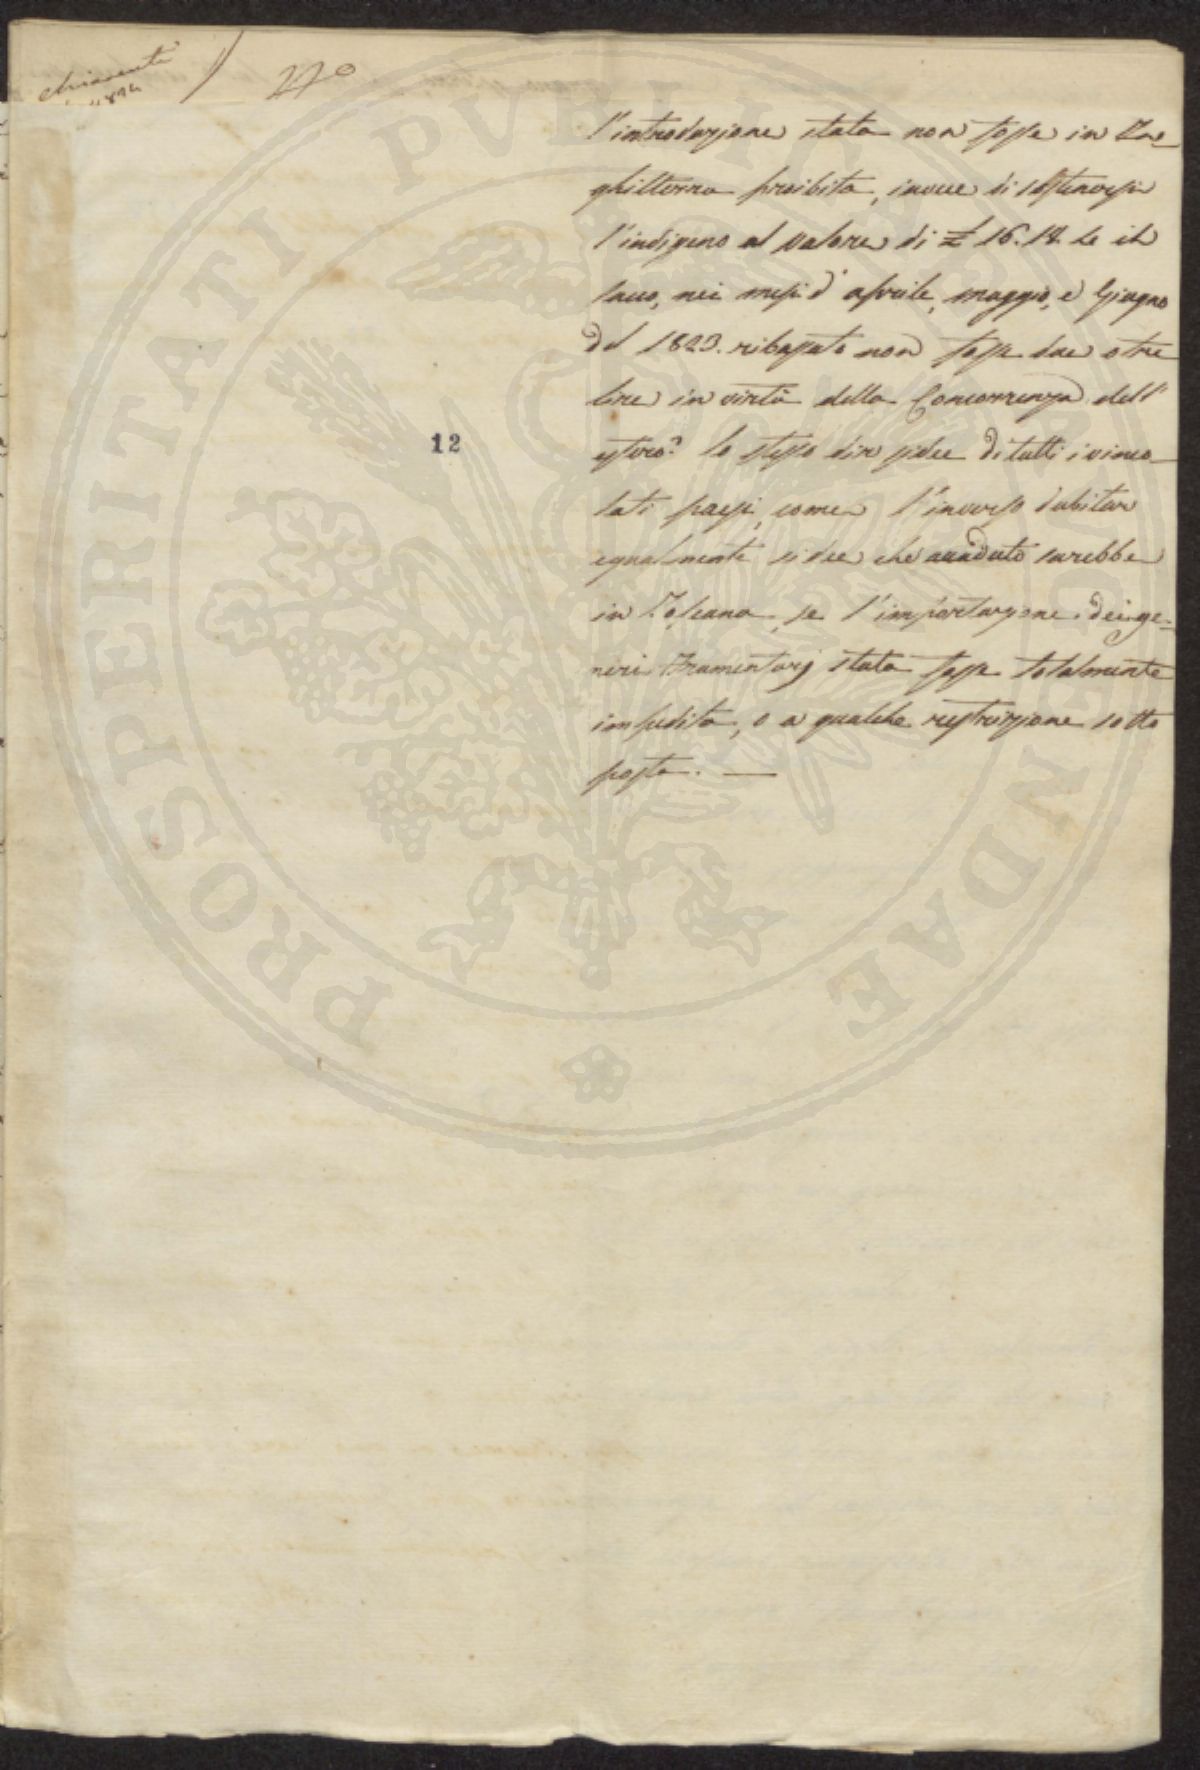 Chiarenti
1824
270
l'introduzione stata non fosse in In=
ghilterra proibita, invece di sostenersi
l'indigeno al valore di £ 16. 18. le il
sacco, nei mesi d'aprile, maggio, e Giugno
del 1823. ribassato non fosse due o tre
lire in virtù della Concorrenza dell'
estero? lo stesso dir si dee di tutti i vinco=
lati paesi, come l'inverso dubitar
egualmente si dee che accaduto sarebbe
in Toscana se l'importazione dei ge=
neri frumentarj stata fosse totalmente
impedita, o a qualche restrizione sotto
posta. —
12
PROSPERITATI PVBLICAE AVGENDAE